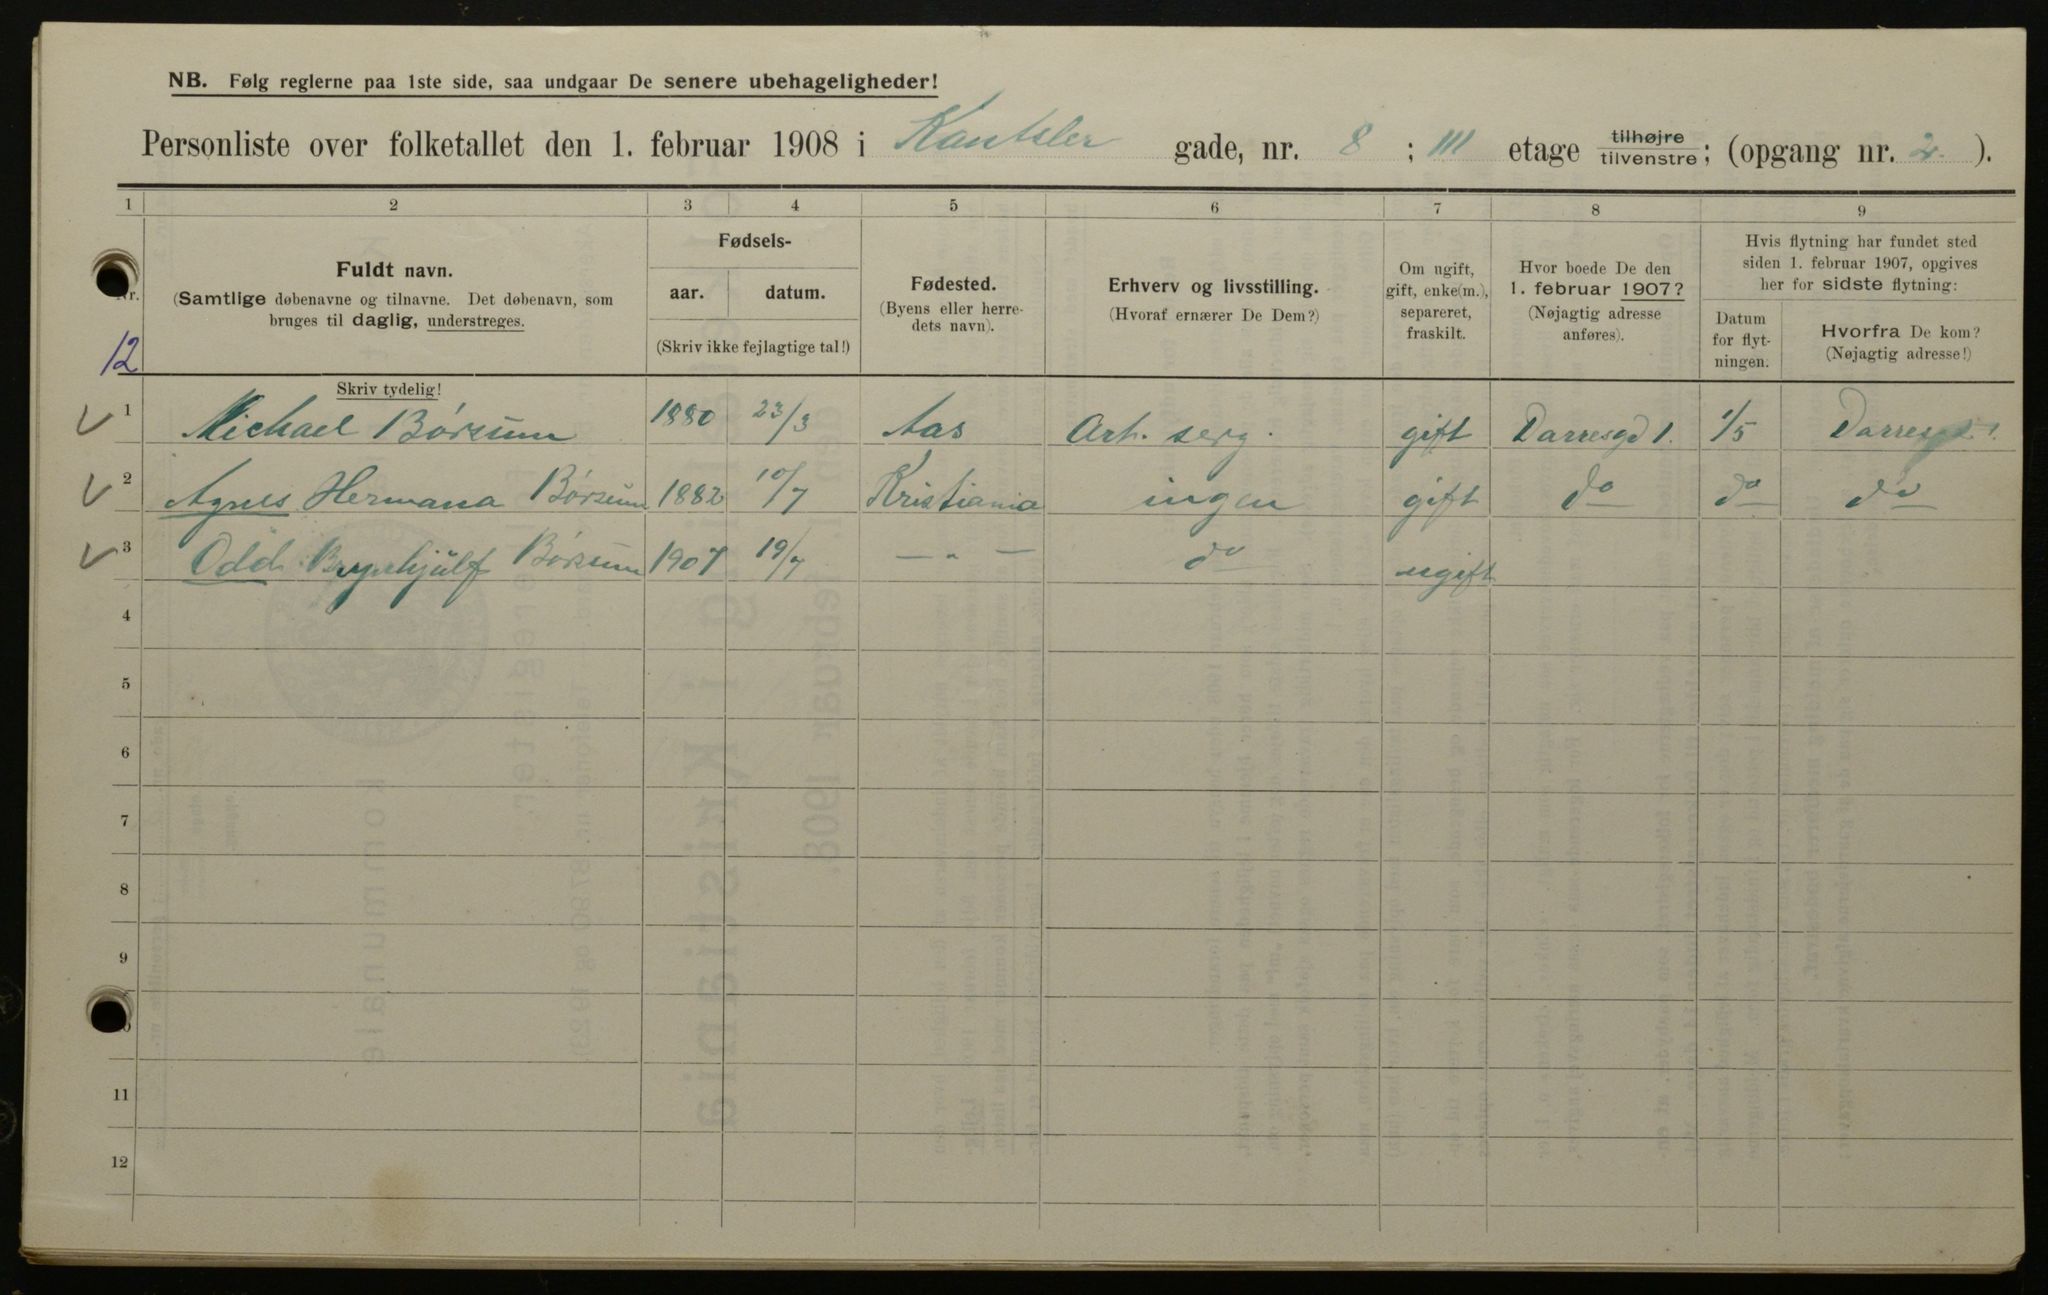 NB. Følg reglerne paa 1ste side, saa undgaar De senere ubehageligheder!
Personliste over folketallet den 1. februar 1908 i Kantsler gade, nr. 8 ; III etage tilhøjre tilvenstre ; (opgang nr. 2. ).
1 2 3 4 5 6 7 8 9
Nr.
12
Fuldt navn.
(Samtlige døbenavne og tilnavne. Det døbenavn, som
bruges til daglig, understreges.
Skriv tydelig!
Fødsels-
aar. datum.
(Skriv ikke fejlagtige tal!)
Fødested.
(Byens eller herre-
dets navn).
Erhverv og livsstilling.
(Hvoraf ernærer De Dem?)
Om ugift,
gift, enke(m.),
separeret,
fraskilt.
Hvor boede De den
1. februar 1907?
(Nøjagtig adresse
anføres).
Hvis flytning har fundet sted
siden 1. februar 1907, opgives
her for sidste flytning:
Datum
for flyt-
ningen.
Hvorfra De kom?
(Nøjagtig adresse!)
1 Michael Børsum 1880 23/3 Aas Art. serg. gift Darresgd 1. 1/5 Darresgd 1.
2 Agnes Hermana Børsum 1882 10/7 Kristiania ingen gift do do do
3 Odd Brynhjulf Børsum 1907 19/7 — „ — do ugift
4
5
6
7
8
9
11
12